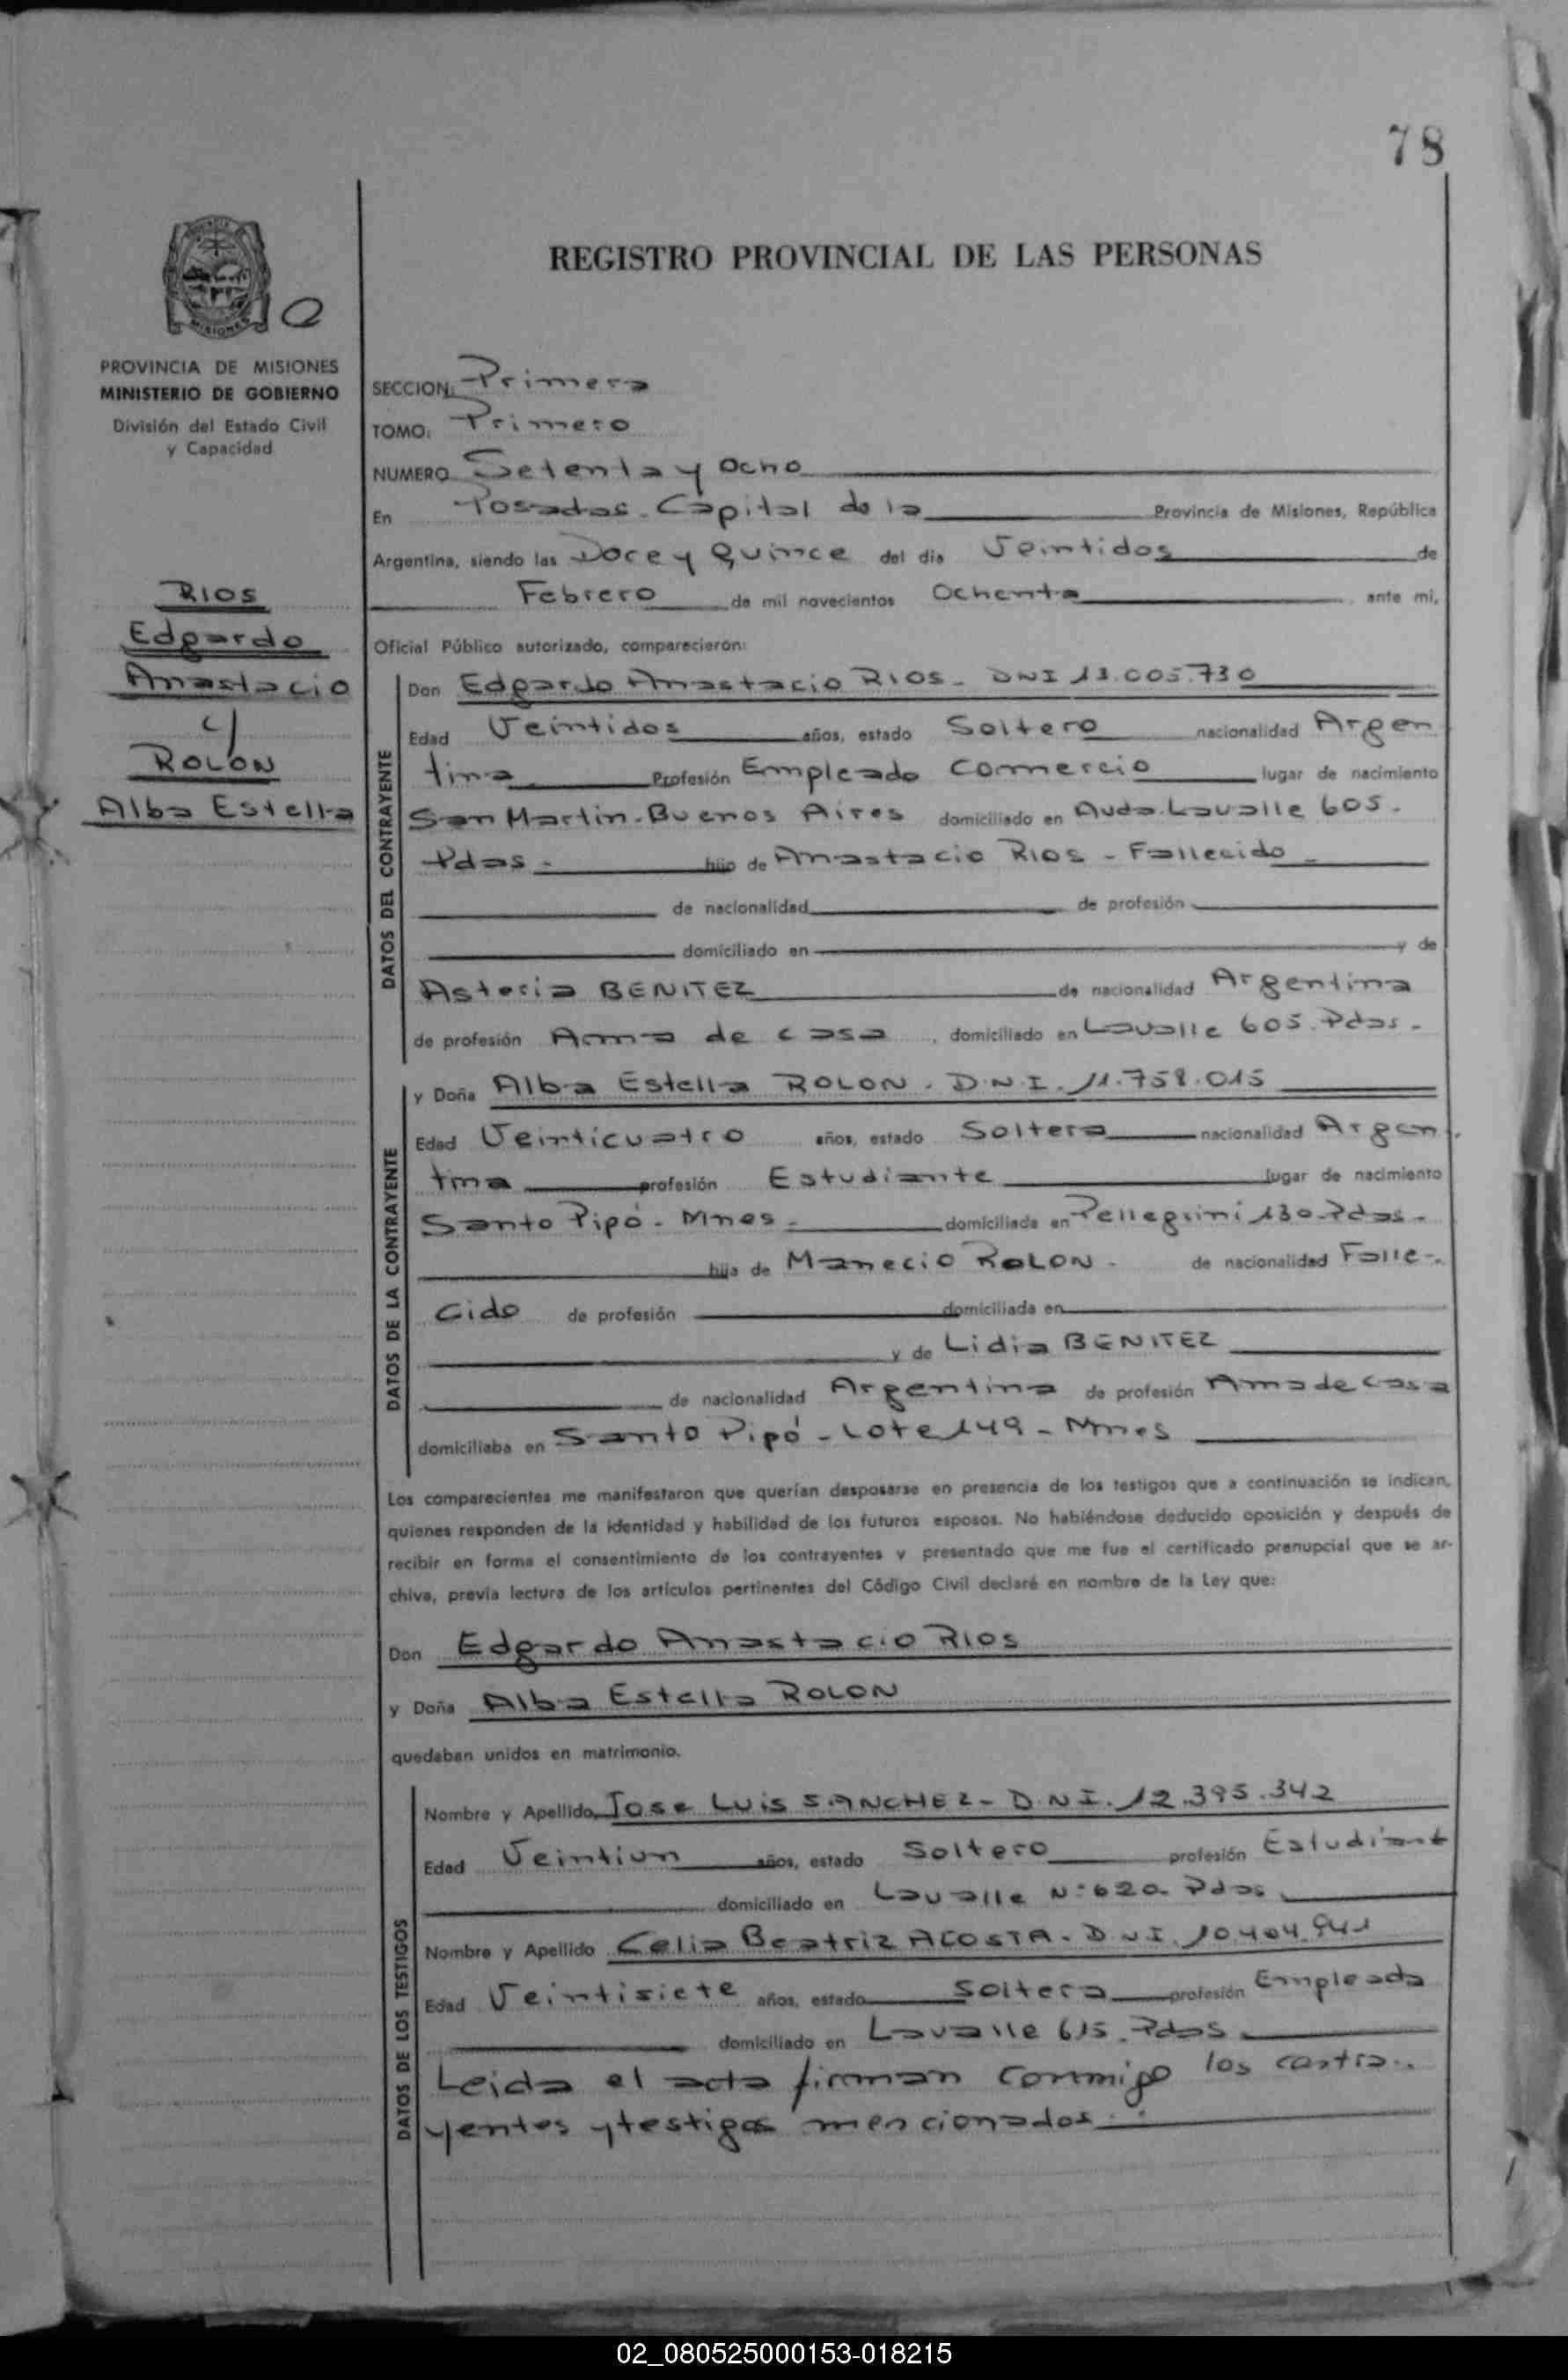 78
REGISTRO PROVINCIAL DE LAS PERSONAS
PROVINCIA DE MISIONES
MINISTERIO DE GOBIERNO
División del Estado Civil
y Capacidad
RIOS
Edgardo
Anastacio
y
ROLON
Alba Estella
SECCION: Primera
TOMO: Primero
NUMERO Setenta y Ocho
En Posadas. Capital de la Provincia de Misiones, República
Argentina, siendo las Doce y Quince del dia Veintidos de
Febrero de mil novecientos Ochenta ante mi,
Oficial Público autorizado, comparecieron:
DATOS DEL CONTRAYENTE
Don Edgardo Anastacio RIOS - DNI 13.005.730
Edad Veintidos años, estado Soltero nacionalidad Argen
tina Profesión Empleado Comercio lugar de nacimiento
San Martin - Buenos Aires domiciliado en Avda. Lavalle 605.
Pdas - hijo de Anastacio RIOS - Fallecido -
de nacionalidad de profesión
domiciliado en y de
Asteria BENITEZ de nacionalidad Argentina
de profesión Ama de casa, domiciliado en Lavalle 605. Pdas.
DATOS DE LA CONTRAYENTE
y Doña Alba Estella ROLON. D.N.I. 11.758.015
Edad Veinticuatro años, estado Soltera nacionalidad Argen
tina profesión Estudiante lugar de nacimiento
Santo Pipó - Mnes - domiciliada en Pellegrini 130. Pdas.
hija de Manecio ROLON. de nacionalidad Falle-
cido de profesión domiciliada en
y de Lidia BENITEZ
de nacionalidad Argentina de profesión Ama de casa
domiciliaba en Santo Pipó - Lote 149 - Mnes
Los comparecientes me manifestaron que querían desposarse en presencia de los testigos que a continuación se indican,
quienes responden de la identidad y habilidad de los futuros esposos. No habiéndose deducido oposición y después de
recibir en forma el consentimiento de los contrayentes y presentado que me fue el certificado prenupcial que se ar-
chiva, previa lectura de los artículos pertinentes del Código Civil declaré en nombre de la Ley que:
Don Edgardo Anastacio RIOS
y Doña Alba Estella ROLON
quedaban unidos en matrimonio.
DATOS DE LOS TESTIGOS
Nombre y Apellido, Jose Luis SANCHEZ - D.N.I. 12.395.342
Edad Veintiun años, estado Soltero profesión Estudiant
domiciliado en Lavalle N° 620. Pdas
Nombre y Apellido Celia Beatriz ACOSTA. D.N.I. 10.404.941
Edad Veintisiete años, estado Soltera profesión Empleada
domiciliado en Lavalle 615. Pdas.
Leida el acta firman conmigo los contra..
yentes y testigos mencionados.
02_080525000153-018215